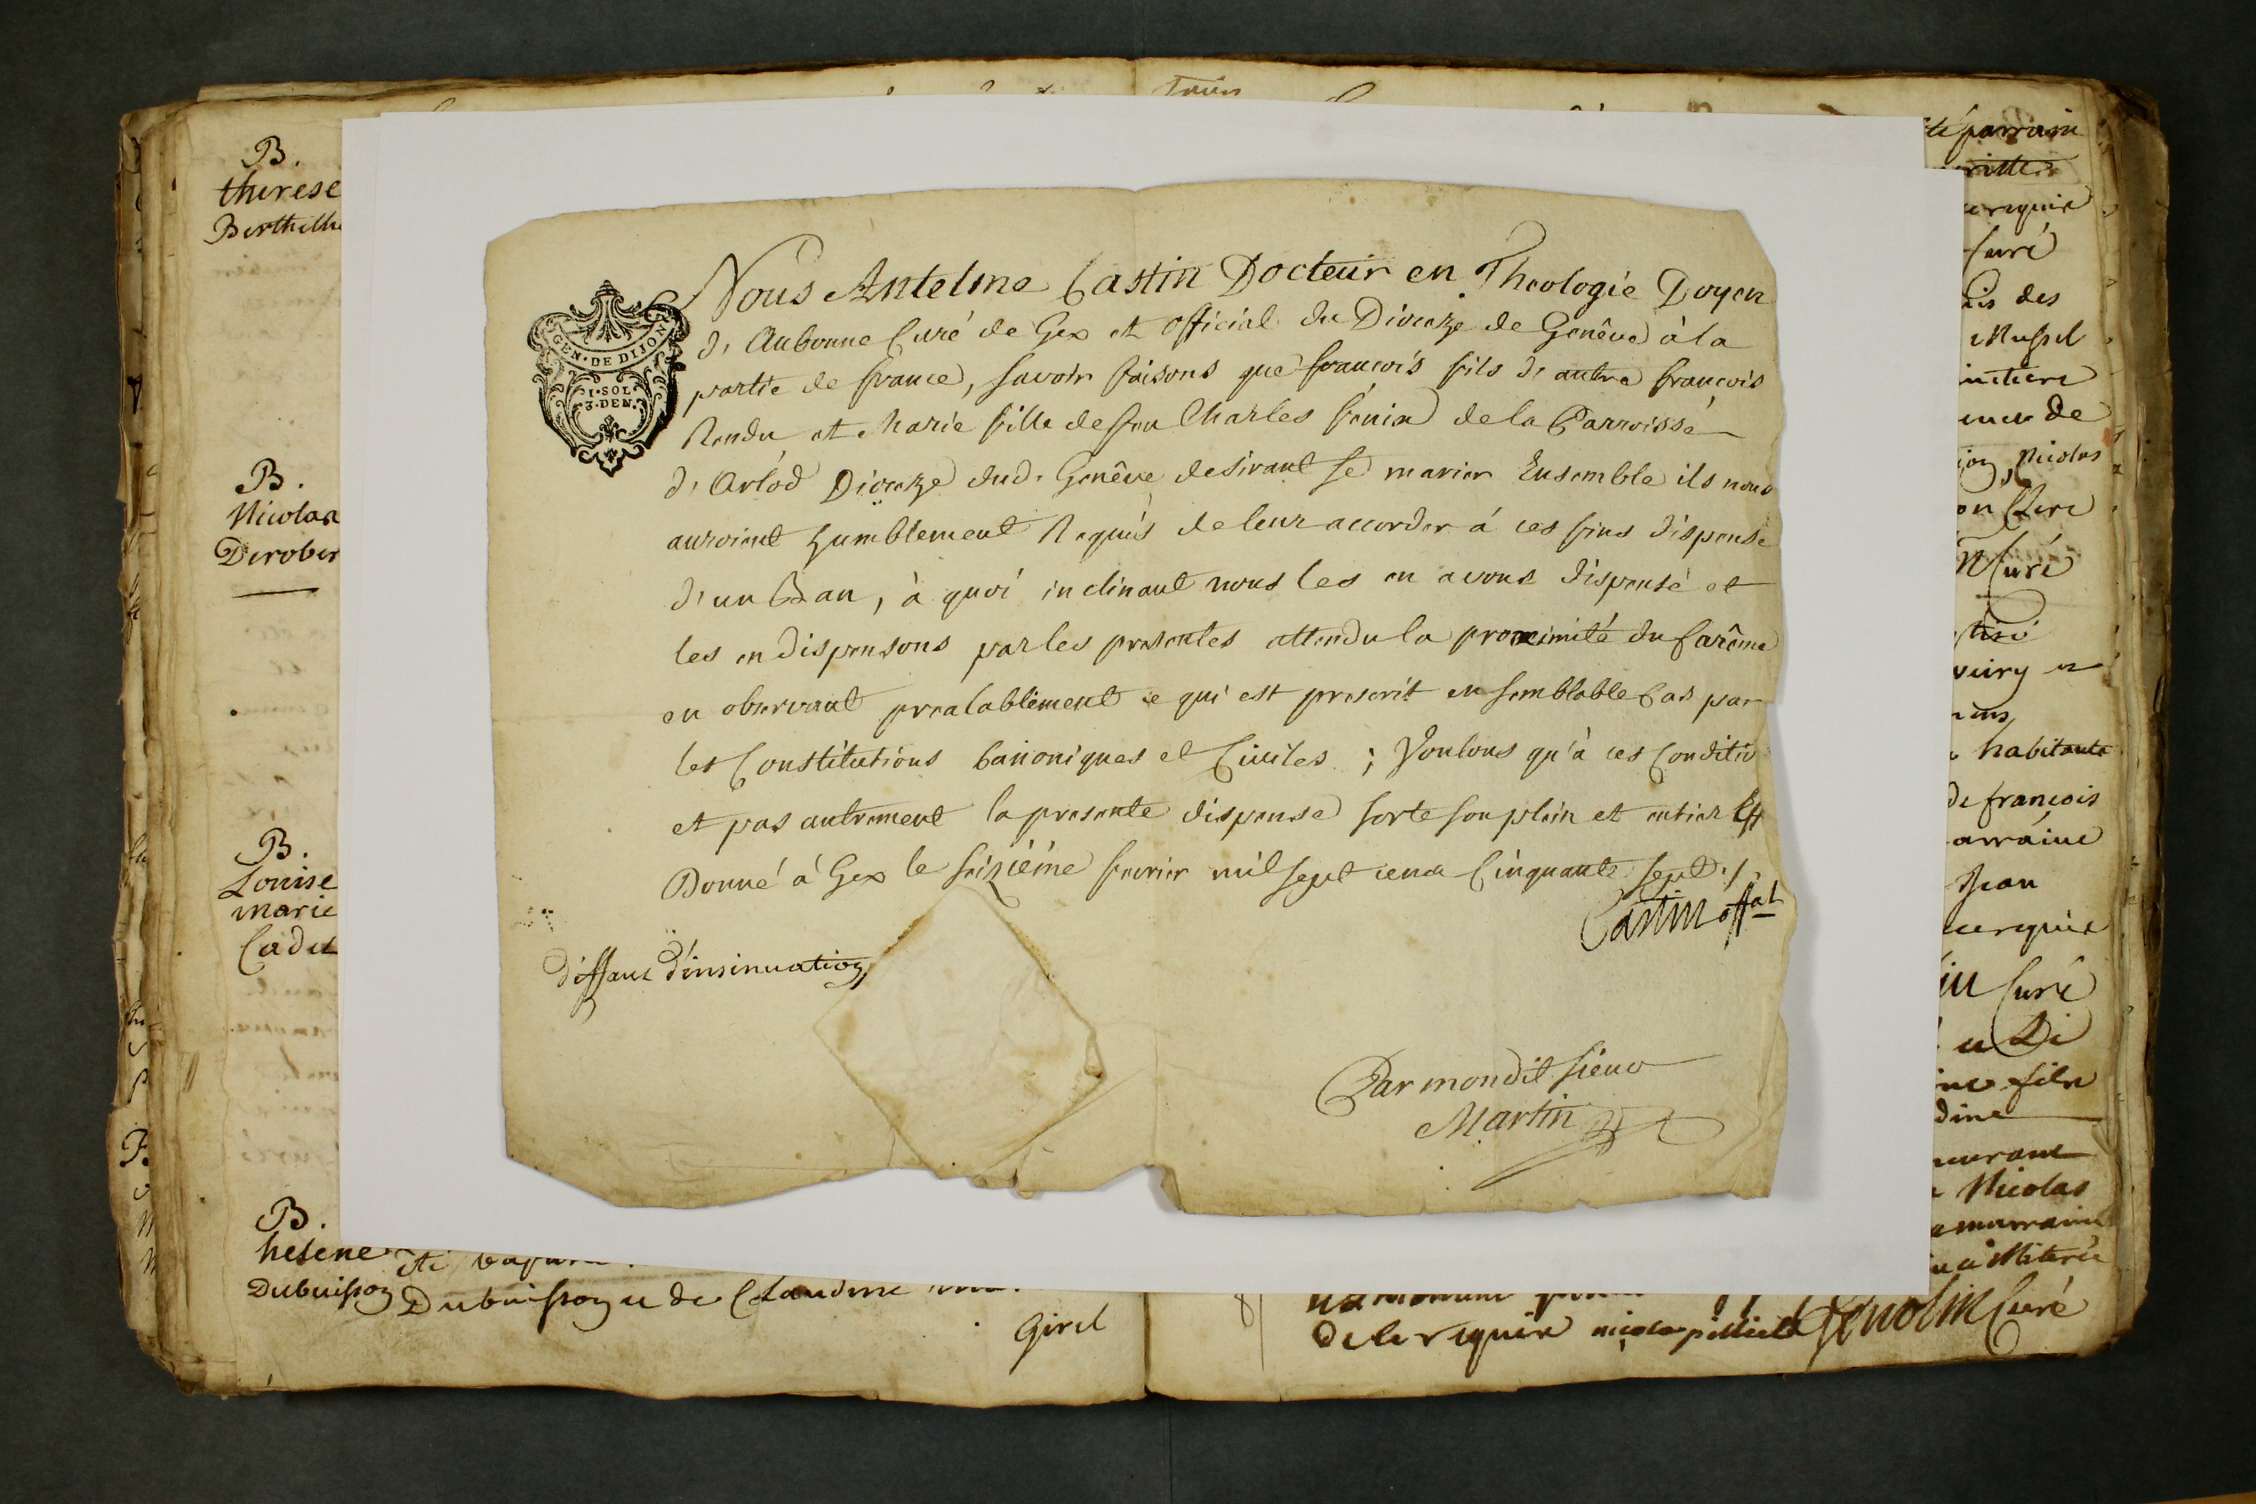 B.
therese
Berthelh
B.
Nicolas
Derober
B.
Louise
marie
Cadet
B.
helene
Dubuisson
Dubuisson u de Claudine
Girel
GEN. DE DIJON
1. SOL
3. DEN.
Nous Antelme Castin Docteur en Theologie Doyen
d'Aubonne Curé de Gex et official du Dioceze de Genêve à la
partie de france, savoir faisons que francois fils d'autre francois
Rendu et Marie fille de feu Charles fenix de la Parroisse
d'Arlod Dioceze dud. Genêve desirant se marier Ensemble ils nous
auroient humblement Requis de leur accorder á ces fins dispense
d'un Ban, à quoi inclinant nous les en avons dispensé et
les en dispensons par les presentes attendu la proximité du Carême
en observant prealablement ce qui est prescrit en semblable Cas par
les Constitutions Canoniques et Civiles ; Voulons qu'à ces Conditio
et pas autrement la presente dispense sorte son plein et entier Eff
Donné à Gex le seizième fevrier mil sept cens Cinquante sept ./.
Castin offal
deffaut d'insinuation
Par mondit sieur
Martin
té parrain
curé
uis des
Nicolas
Curé
habitante
de francois
Jean
Curé
fils
dine
Nicolas
de lerequier nicolas
Curé